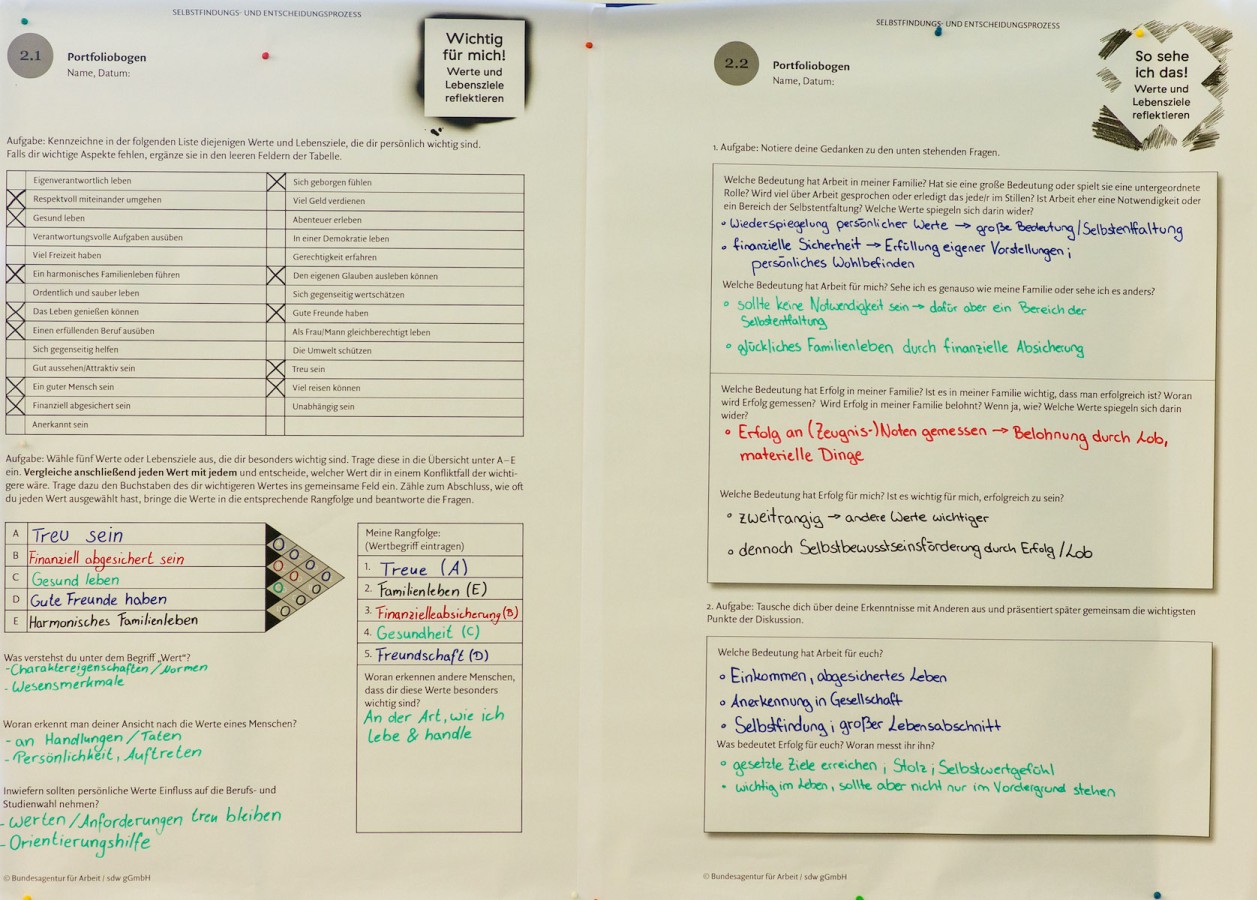 SELBSTFINDUNGS- UND ENTSCHEIDUNGSPROZESS
2.1
Portfoliobogen
Name, Datum:
Wichtig
für mich!
Werte und
Lebensziele
reflektieren
Aufgabe: Kennzeichne in der folgenden Liste diejenigen Werte und Lebensziele, die dir persönlich wichtig sind.
Falls dir wichtige Aspekte fehlen, ergänze sie in den leeren Feldern der Tabelle.
Eigenverantwortlich leben
Respektvoll miteinander umgehen
Gesund leben
Verantwortungsvolle Aufgaben ausüben
Viel Freizeit haben
Ein harmonisches Familienleben führen
Ordentlich und sauber leben
Das Leben genießen können
Einen erfüllenden Beruf ausüben
Sich gegenseitig helfen
Gut aussehen/Attraktiv sein
Ein guter Mensch sein
Finanziell abgesichert sein
Anerkannt sein
Sich geborgen fühlen
Viel Geld verdienen
Abenteuer erleben
In einer Demokratie leben
Gerechtigkeit erfahren
Den eigenen Glauben ausleben können
Sich gegenseitig wertschätzen
Gute Freunde haben
Als Frau/Mann gleichberechtigt leben
Die Umwelt schützen
Treu sein
Viel reisen können
Unabhängig sein
Aufgabe: Wähle fünf Werte oder Lebensziele aus, die dir besonders wichtig sind. Trage diese in die Übersicht unter A–E
ein. Vergleiche anschließend jeden Wert mit jedem und entscheide, welcher Wert dir in einem Konfliktfall der wichti-
gere wäre. Trage dazu den Buchstaben des dir wichtigeren Wertes ins gemeinsame Feld ein. Zähle zum Abschluss, wie oft
du jeden Wert ausgewählt hast, bringe die Werte in die entsprechende Rangfolge und beantworte die Fragen.
A Treu sein
B Finanziell abgesichert sein
C Gesund leben
D Gute Freunde haben
E Harmonisches Familienleben
Meine Rangfolge:
(Wertbegriff eintragen)
1. Treue (A)
2. Familienleben (E)
3. Finanzielleabsicherung (B)
4. Gesundheit (C)
5. Freundschaft (D)
Woran erkennen andere Menschen,
dass dir diese Werte besonders
wichtig sind?
An der Art, wie ich
lebe & handle
Was verstehst du unter dem Begriff „Wert"?
- Charaktereigenschaften / Normen
- Wesensmerkmale
Woran erkennt man deiner Ansicht nach die Werte eines Menschen?
- an Handlungen / Taten
- Persönlichkeit, Auftreten
Inwiefern sollten persönliche Werte Einfluss auf die Berufs- und
Studienwahl nehmen?
- Werten / Anforderungen treu bleiben
- Orientierungshilfe
© Bundesagentur für Arbeit / sdw gGmbH
SELBSTFINDUNGS- UND ENTSCHEIDUNGSPROZESS
2.2
Portfoliobogen
Name, Datum:
So sehe
ich das!
Werte und
Lebensziele
reflektieren
1. Aufgabe: Notiere deine Gedanken zu den unten stehenden Fragen.
Welche Bedeutung hat Arbeit in meiner Familie? Hat sie eine große Bedeutung oder spielt sie eine untergeordnete
Rolle? Wird viel über Arbeit gesprochen oder erledigt das jede/r im Stillen? Ist Arbeit eher eine Notwendigkeit oder
ein Bereich der Selbstentfaltung? Welche Werte spiegeln sich darin wider?
• Wiederspiegelung persönlicher Werte → große Bedeutung/Selbstentfaltung
• finanzielle Sicherheit → Erfüllung eigener Vorstellungen;
persönliches Wohlbefinden
Welche Bedeutung hat Arbeit für mich? Sehe ich es genauso wie meine Familie oder sehe ich es anders?
• sollte keine Notwendigkeit sein → dafür aber ein Bereich der
Selbstentfaltung
• glückliches Familienleben durch finanzielle Absicherung
Welche Bedeutung hat Erfolg in meiner Familie? Ist es in meiner Familie wichtig, dass man erfolgreich ist? Woran
wird Erfolg gemessen? Wird Erfolg in meiner Familie belohnt? Wenn ja, wie? Welche Werte spiegeln sich darin
wider?
• Erfolg an (Zeugnis-)Noten gemessen → Belohnung durch Lob,
materielle Dinge
Welche Bedeutung hat Erfolg für mich? Ist es wichtig für mich, erfolgreich zu sein?
• zweitrangig → andere Werte wichtiger
• dennoch Selbstbewusstseinsförderung durch Erfolg / Lob
2. Aufgabe: Tausche dich über deine Erkenntnisse mit Anderen aus und präsentiert später gemeinsam die wichtigsten
Punkte der Diskussion.
Welche Bedeutung hat Arbeit für euch?
• Einkommen, abgesichertes Leben
• Anerkennung in Gesellschaft
• Selbstfindung; großer Lebensabschnitt
Was bedeutet Erfolg für euch? Woran messt ihr ihn?
• gesetzte Ziele erreichen; Stolz; Selbstwertgefühl
• wichtig im Leben, sollte aber nicht nur im Vordergrund stehen
© Bundesagentur für Arbeit / sdw gGmbH